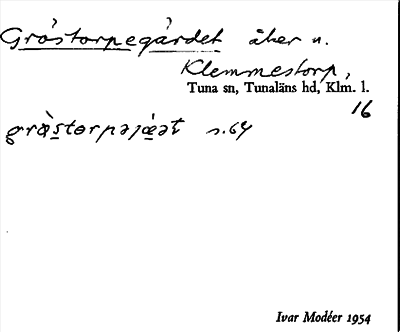 Gråstorpegärdet åker n.
Klemmestorp,
Tuna sn, Tunaläns hd, Klm. l.
16
s. 64
Ivar Modéer 1954